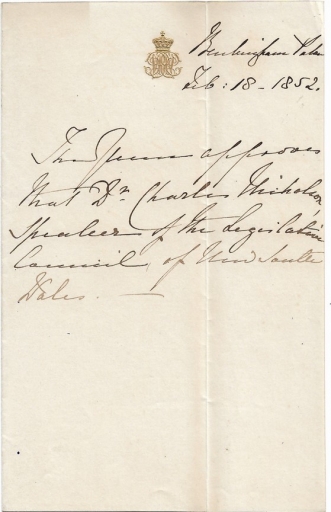 Buckingham Palace
Feb: 18 - 1852.
The Queen approves
that Dr. Charles Nicholson
Speaker of the Legislative
Council, of New South
Wales. —